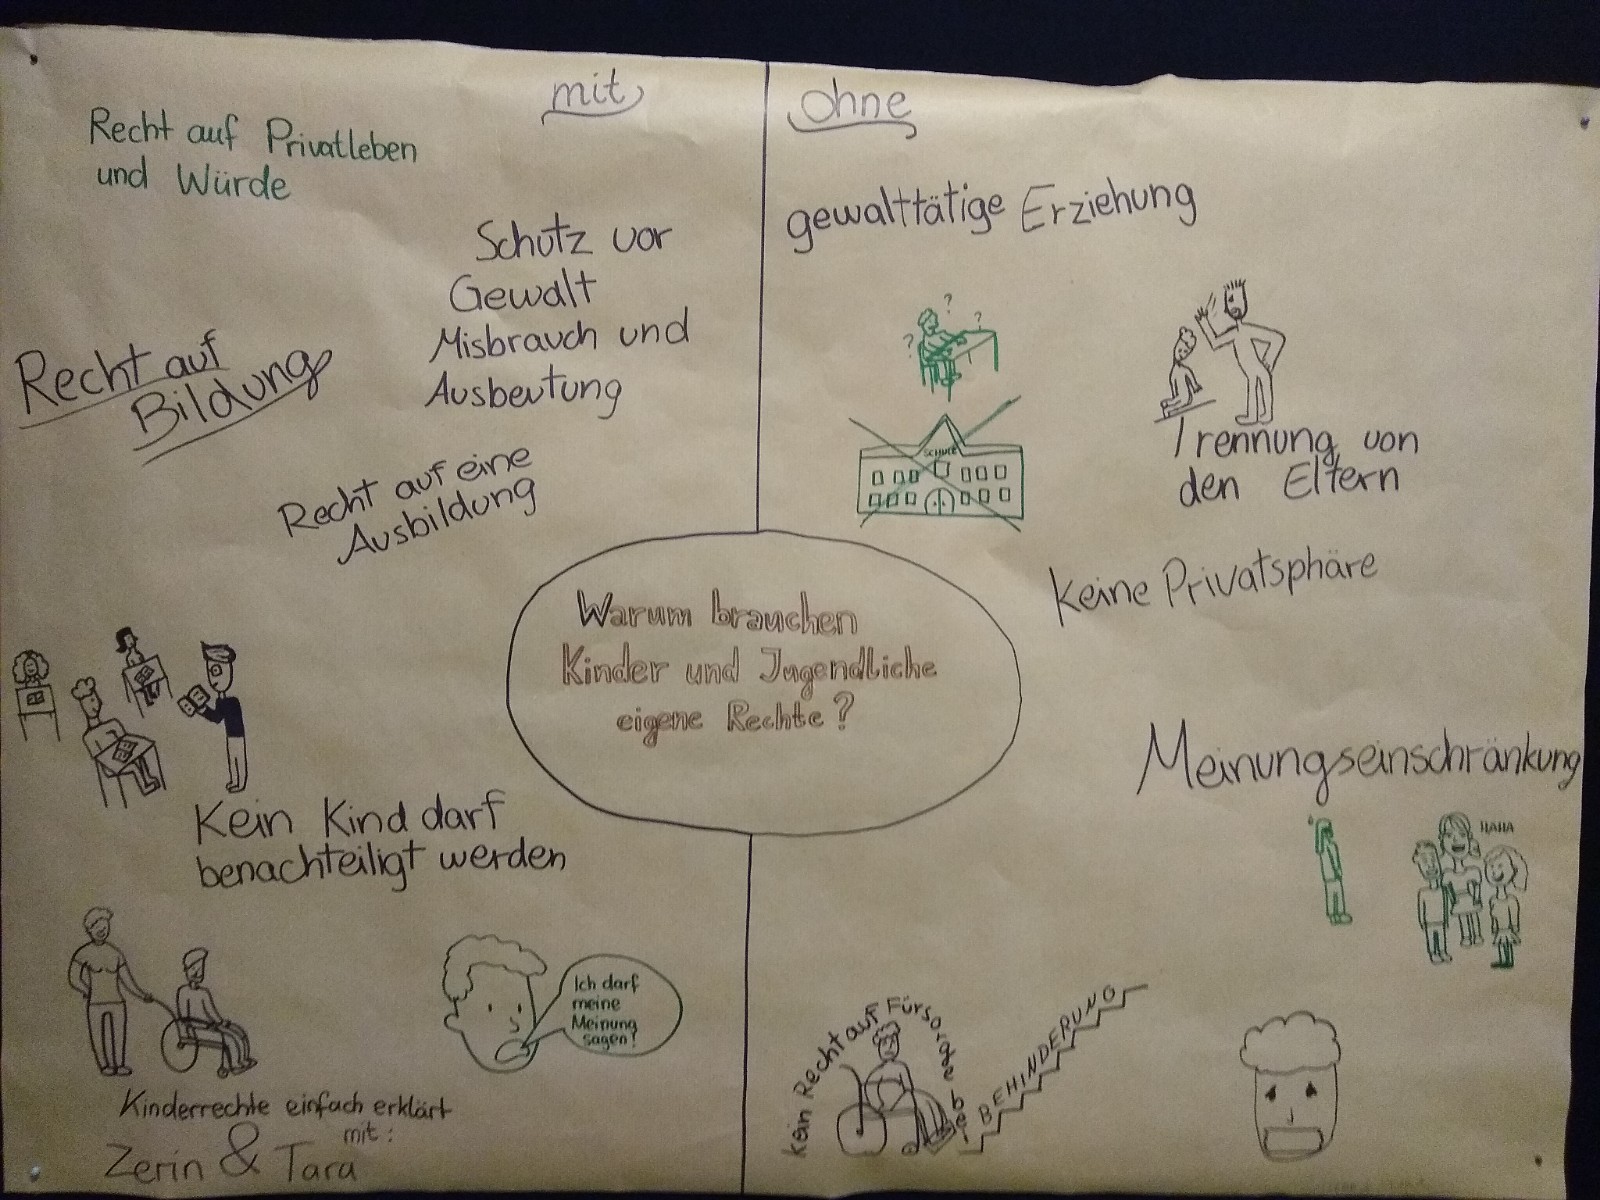 mit
Recht auf Privatleben
und Würde
Schutz vor
Gewalt
Misbrauch und
Ausbeutung
Recht auf
Bildung
Recht auf eine
Ausbildung
Kein Kind darf
benachteiligt werden
Ich darf
meine
Meinung
sagen!
Kinderrechte einfach erklärt
mit:
Zerin & Tara
Warum brauchen
Kinder und Jugendliche
eigene Rechte?
ohne
gewalttätige Erziehung
? ? ?
SCHULE
Trennung von
den Eltern
Keine Privatsphäre
Meinungseinschränkung
HAHA
Kein Recht auf Fürsorge bei
BEHINDERUNG